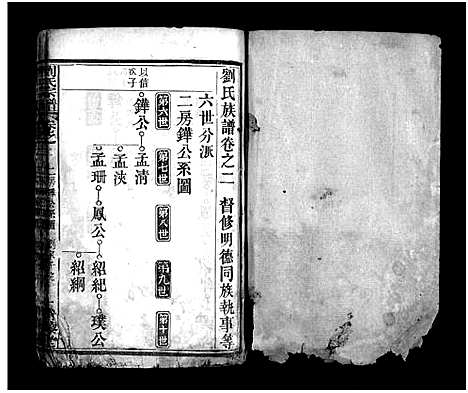 劉氏族譜卷之二　督修明德同族執事等
六世分派
二房鏵公系圖
第六世　第七世　第八世　第九世　第十世
以信
次子
鏵公　孟清
孟浹
孟珊　鳳公　紹紀　璞公
紹綱